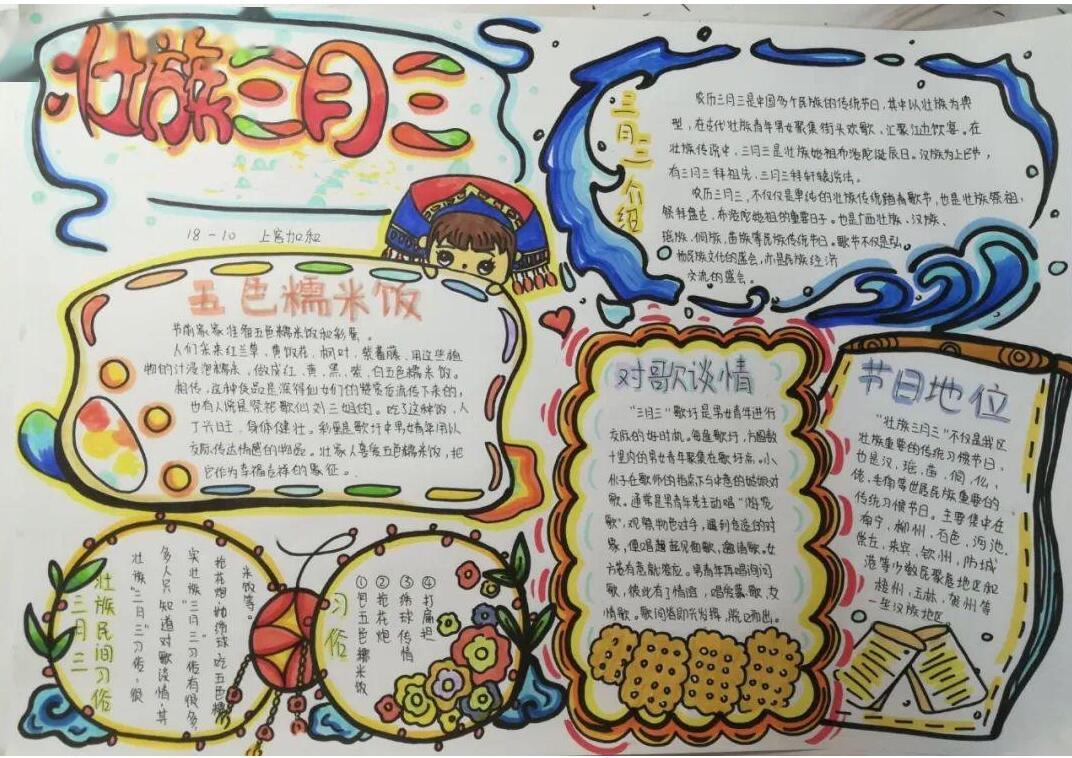 壮族三月三
18-10 上官加和
三月三介绍
农历三月三是中国多个民族的传统节日,其中以壮族为典
型,在古代壮族青年男女聚集街头欢歌、汇聚江边饮宴。在
壮族传说中,三月三是壮族始祖布洛陀诞辰日。汉族为上巳节,
有三月三拜祖先,三月三拜轩辕说法。
农历三月三,不仅仅是单纯的壮族传统踏青歌节,也是壮族祭祖,
祭拜盘古,布洛陀始祖的重要日子。也是广西壮族、汉族、
瑶族、侗族、苗族等民族传统节日。歌节不仅是弘
扬民族文化的盛会,亦是民族经济
交流的盛会。
五色糯米饭
节前家家准备五色糯米饭和彩蛋。
人们采来红兰草、黄饭花、枫叶、紫蕃藤,用这些植
物的汁浸泡糯米,做成红、黄、黑、紫、白五色糯米饭。
相传,这种食品是深得仙女们的赞赏后流传下来的,
也有人说是祭祀歌仙刘三姐的。吃了这种饭,人
丁兴旺,身体健壮。彩蛋是歌圩中男女青年用以
交际传达情感的物品。壮家人喜爱五色糯米饭,把
它作为幸福吉祥的象征。
对歌谈情
“三月三”歌圩是男女青年进行
交际的好时机。每逢歌圩,方圆数
十里内的男女青年聚集在歌圩点。小
伙子在歌师的指点下与中意的姑娘对
歌。通常是男青年先主动唱“游览
歌”,观察物色对手,遇到合适的对
象,便唱起见面歌、邀请歌。女
方若有意就答应。男青年再唱询问
歌,彼此有了情谊,唱爱慕歌、交
情歌。歌词皆即兴发挥,脱口而出。
节日地位
“壮族三月三”不仅是我区
壮族重要的传统习俗节日,
也是汉、瑶、苗、侗、仫
佬、毛南等世居民族重要的
传统习俗节日。主要集中在
南宁、柳州、百色、河池、
崇左、来宾、钦州、防城
港等少数民聚居地区和
梧州、玉林、贺州等
一些汉族地区
壮族民间习俗
三月三
壮族“三月三”习俗,很
多人只知道对歌谈情,其
实壮族“三月三”习俗有很多,
抢花炮抛绣球吃五色糯
米饭等。
习俗
①包五色糯米饭
②抢花炮
③绣球传情
④打扁担